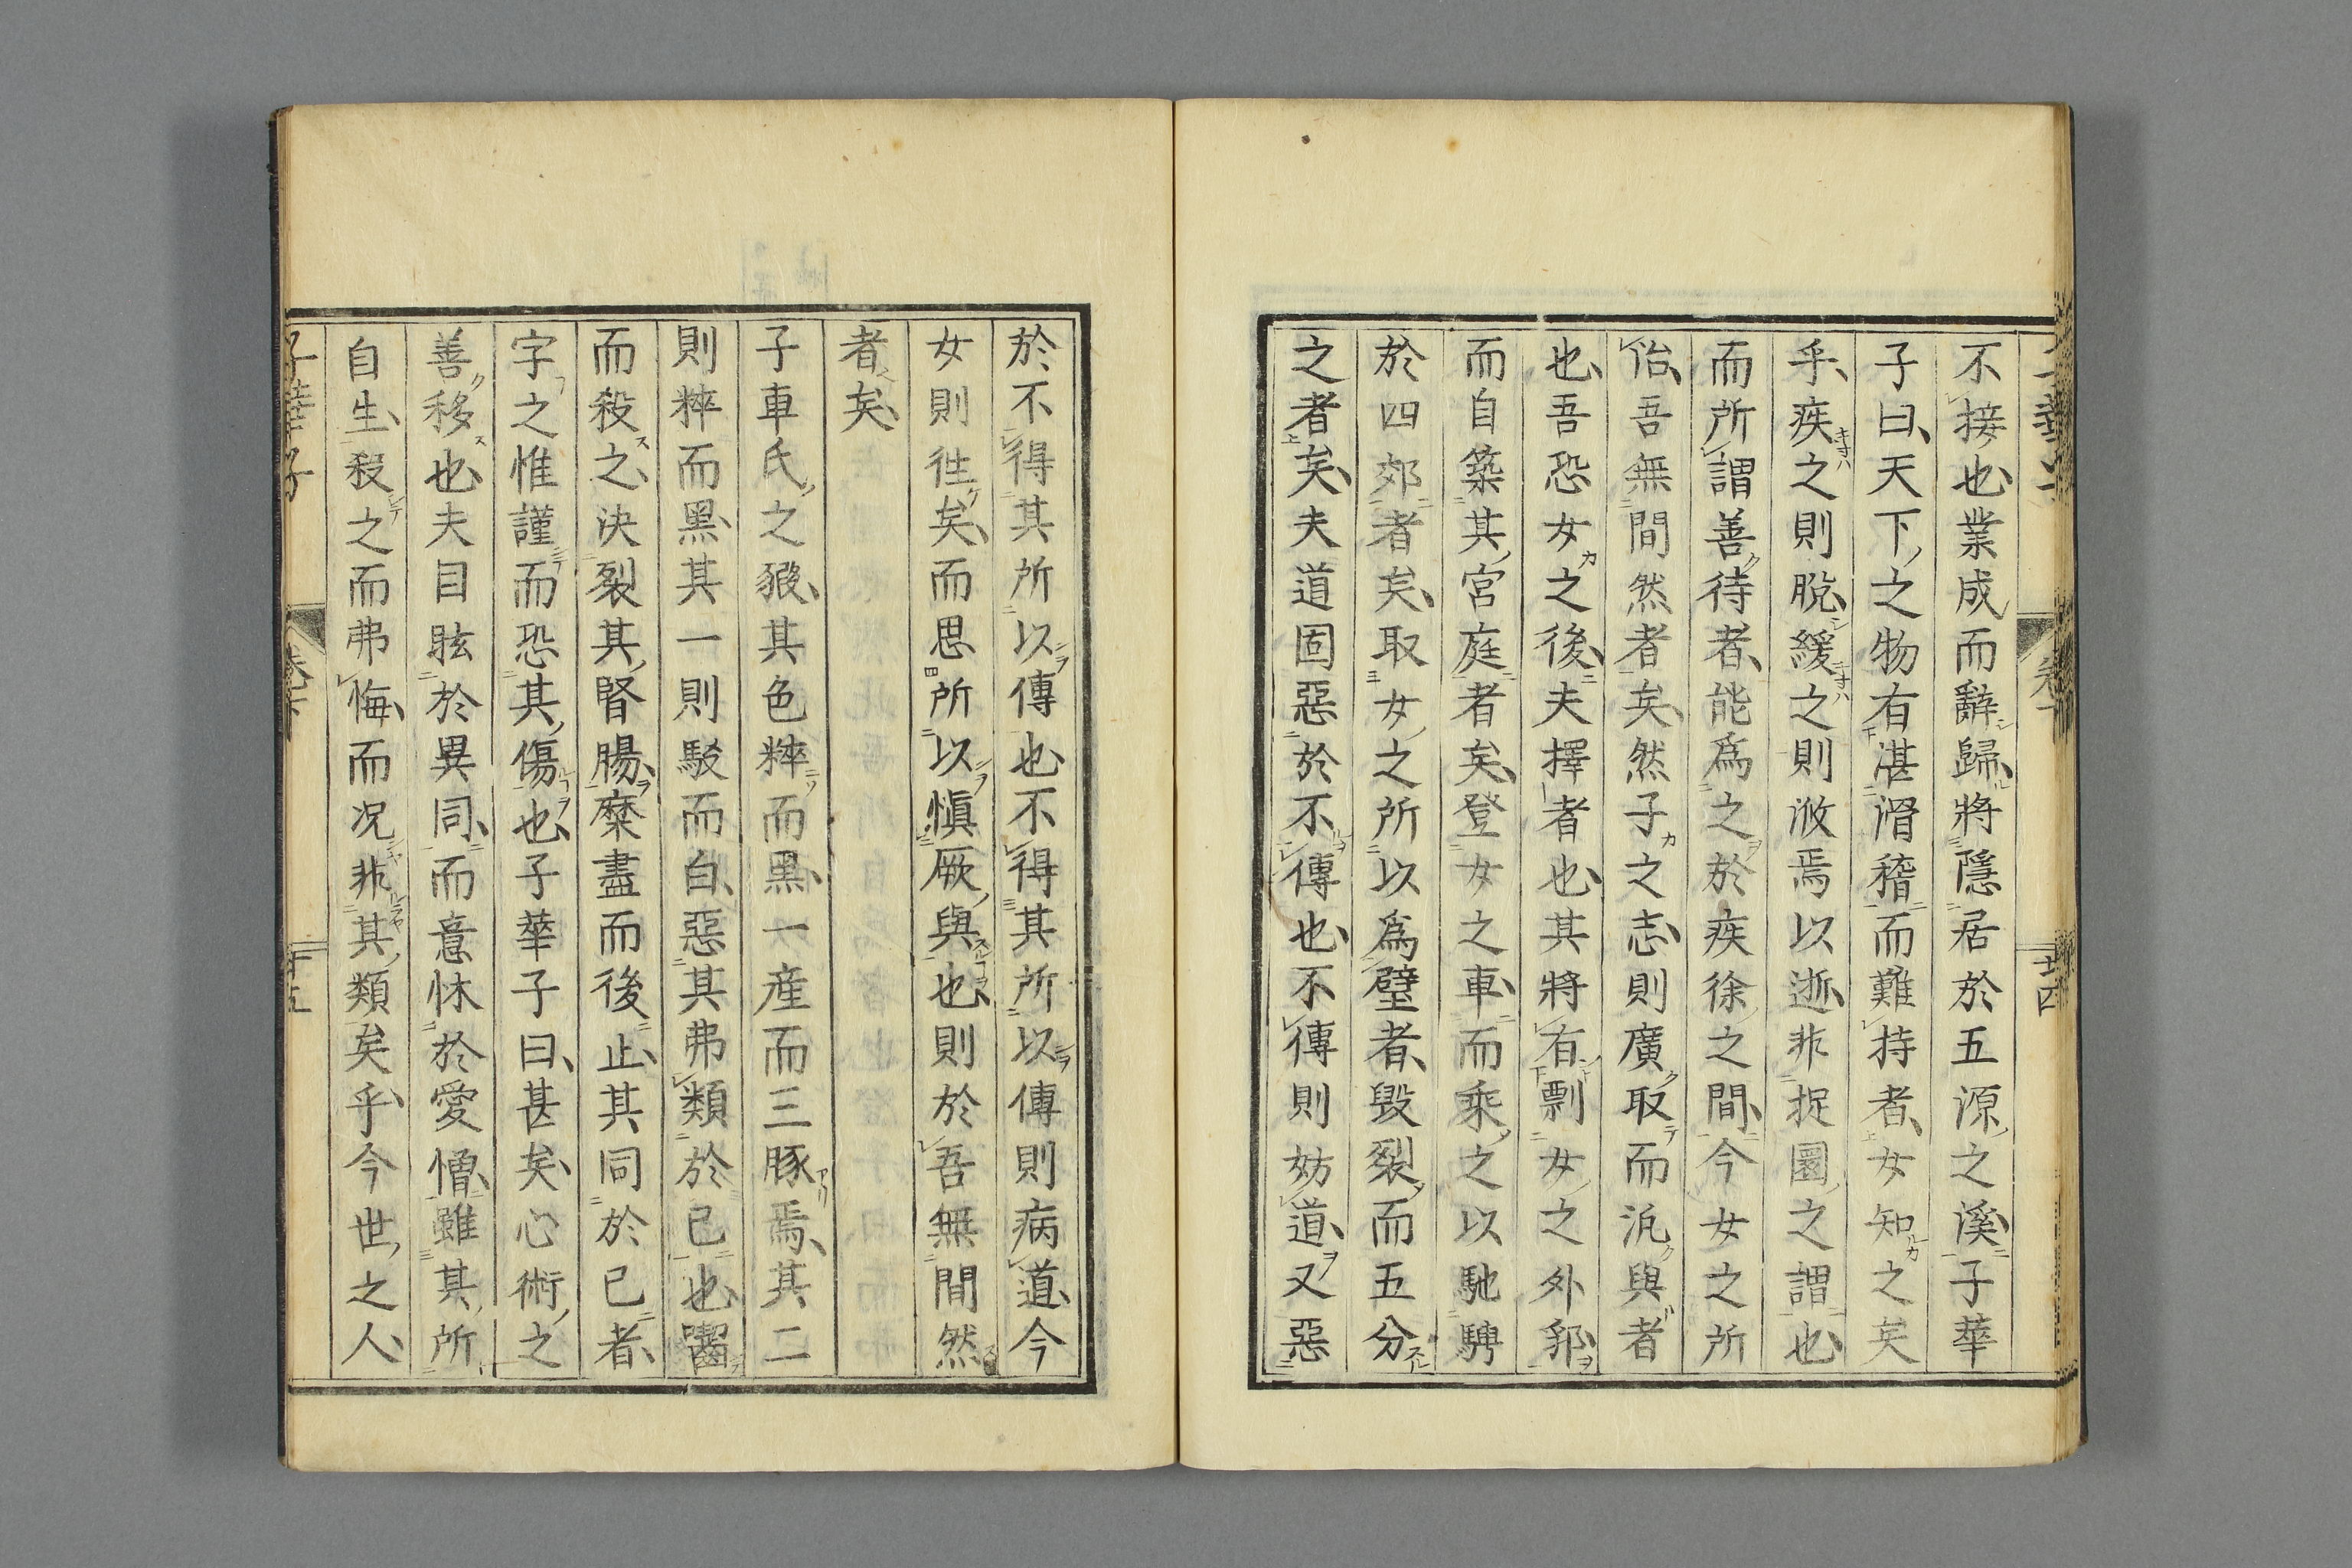 不接也業成而辭歸將隱居於五源之溪子華
子曰天下之物有湛滑稽而難持者女知之矣
乎疾之則脫緩之則浟焉以逝非捉圂之謂也
而所謂善待者能爲之於疾徐之間今女之所
佁吾無間然者矣然子之志則廣取而汎與者
也吾恐女之後夫擇者也其將有剽女之外郛
而自築其宮庭者矣登女之車而乘之以馳騁
於四郊者矣取女之所以爲璧者毀裂而五分
之者矣夫道固惡於不傳也不傳則妨道又惡
於不得其所以傳也不得其所以傳則病道今
女則往矣而思所以愼厥與也則於吾無間然
者矣
子車氏之豭其色粹而黑一産而三豚焉其二
則粹而黑其一則駁而白惡其弗類於已也齧
而殺之決裂其腎腸糜盡而後止其同於已者
字之惟謹而恐其傷也子華子曰甚矣心術之
善移也夫目眩於異同而意怵於愛憎雖其所
自生殺之而弗悔而况非其類矣乎今世之人
子華子
卷下
十五